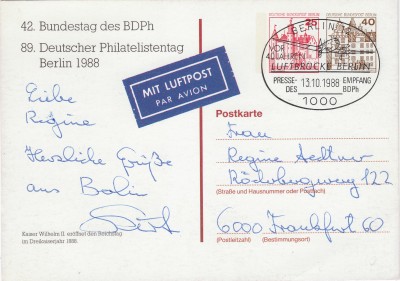 42. Bundestag des BDPh
89. Deutscher Philatelistentag
Berlin 1988
MIT LUFTPOST
PAR AVION
25
40
BERLIN
VOR
40 JAHREN
LUFTBRÜCKE BERLIN
PRESSE- 13.10.1988 EMPFANG
DES BDPh
1000
Liebe
Regine
Herzliche Grüße
aus Berlin
Kaiser Wilhelm II. eröffnet den Reichstag
im Dreikaiserjahr 1888
Postkarte
Frau
Regine
Rödelbergweg 122
(Straße und Hausnummer oder Postfach)
6000 Frankfurt 60
(Postleitzahl) (Bestimmungsort)